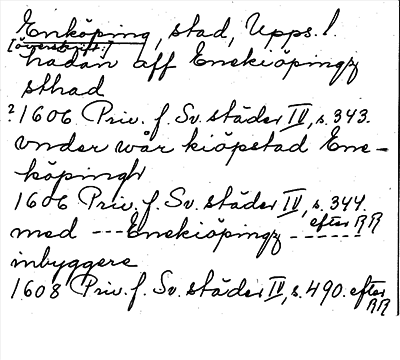 Enköping, stad, Upps. l.
[överskrift:]
hädan aff Enekiöpingz
sthad
? 1606 Priv. f. Sv. städer IV, s. 343.
vnder wår kiöpstad Ene-
köpingh
1606 Priv. f. Sv. städer IV, s. 344.
efter RR
med --- Enekiöpingz ------
inbyggere
1608 Priv. f. Sv. städer IV, s. 490. efter
RR